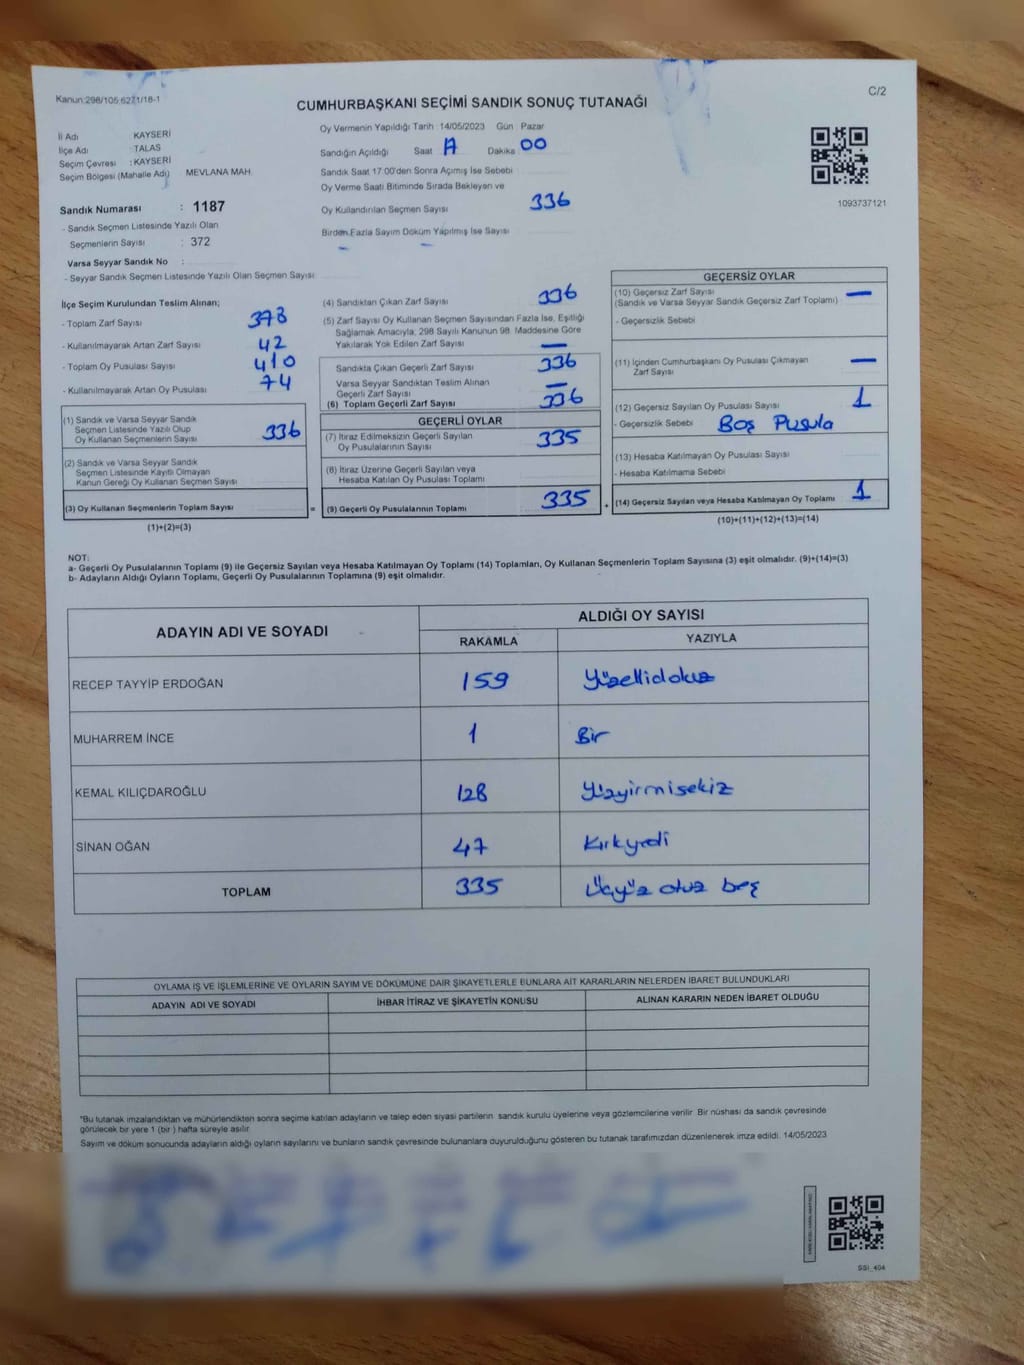 Kanun:298/105,6271/18-1
C/2
CUMHURBAŞKANI SEÇİMİ SANDIK SONUÇ TUTANAĞI
İl Adı KAYSERİ
İlçe Adı : TALAS
Seçim Çevresi : KAYSERİ
Seçim Bölgesi (Mahalle Adı) MEVLANA MAH.
Sandık Numarası : 1187
- Sandık Seçmen Listesinde Yazılı Olan
Seçmenlerin Sayısı : 372
Varsa Seyyar Sandık No :
- Seyyar Sandık Seçmen Listesinde Yazılı Olan Seçmen Sayısı:
Oy Vermenin Yapıldığı Tarih :14/05/2023 Gün Pazar
Sandığın Açıldığı Saat Dakika 00
Sandık Saat 17.00'den Sonra Açımış İse Sebebi
Oy Verme Saati Bitiminde Sırada Bekleyen ve
Oy Kullandırılan Seçmen Sayısı 336
Birden Fazla Sayım Döküm Yapılmış İse Sayısı
1093737121
İlçe Seçim Kurulundan Teslim Alınan;
- Toplam Zarf Sayısı 378
- Kullanılmayarak Artan Zarf Sayısı 42
- Toplam Oy Pusulası Sayısı 410
- Kullanılmayarak Artan Oy Pusulası 74
(1) Sandık ve Varsa Seyyar Sandık
Seçmen Listesinde Yazılı Olup
Oy Kullanan Seçmenlerin Sayısı 336
(2) Sandık ve Varsa Seyyar Sandık
Seçmen Listesinde Kayıtlı Olmayan
Kanun Gereği Oy Kullanan Seçmen Sayısı
(3) Oy Kullanan Seçmenlerin Toplam Sayısı
(1)+(2)=(3)
=
(4) Sandıktan Çıkan Zarf Sayısı 336
(5) Zarf Sayısı Oy Kullanan Seçmen Sayısından Fazla İse, Eşitliği
Sağlamak Amacıyla, 298 Sayılı Kanunun 98. Maddesine Göre
Yakılarak Yok Edilen Zarf Sayısı —
Sandıkta Çıkan Geçerli Zarf Sayısı 336
Varsa Seyyar Sandıktan Teslim Alınan
Geçerli Zarf Sayısı —
(6) Toplam Geçerli Zarf Sayısı 336
GEÇERLİ OYLAR
(7) İtiraz Edilmeksizin Geçerli Sayılan
Oy Pusulalarının Sayısı 335
(8) İtiraz Üzerine Geçerli Sayılan veya
Hesaba Katılan Oy Pusulası Toplamı
(9) Geçerli Oy Pusulalarının Toplamı 335
+
GEÇERSİZ OYLAR
(10) Geçersiz Zarf Sayısı —
(Sandık ve Varsa Seyyar Sandık Geçersiz Zarf Toplamı)
- Geçersizlik Sebebi
(11) İçinden Cumhurbaşkanı Oy Pusulası Çıkmayan —
Zarf Sayısı
(12) Geçersiz Sayılan Oy Pusulası Sayısı 1
- Geçersizlik Sebebi Boş Pusula
(13) Hesaba Katılmayan Oy Pusulası Sayısı
- Hesaba Katılmama Sebebi
(14) Geçersiz Sayılan veya Hesaba Katılmayan Oy Toplamı 1
(10)+(11)+(12)+(13)=(14)
NOT:
a- Geçerli Oy Pusulalarının Toplamı (9) ile Geçersiz Sayılan veya Hesaba Katılmayan Oy Toplamı (14) Toplamları, Oy Kullanan Seçmenlerin Toplam Sayısına (3) eşit olmalıdır. (9)+(14)=(3)
b- Adayların Aldığı Oyların Toplamı, Geçerli Oy Pusulalarının Toplamına (9) eşit olmalıdır.
ADAYIN ADI VE SOYADI ALDIĞI OY SAYISI
RAKAMLA YAZIYLA
RECEP TAYYİP ERDOĞAN 159 Yüzellidokuz
MUHARREM İNCE 1 Bir
KEMAL KILIÇDAROĞLU 128 Yüzyirmisekiz
SİNAN OĞAN 47 Kırkyedi
TOPLAM 335 Üçyüz otuz beş
OYLAMA İŞ VE İŞLEMLERİNE VE OYLARIN SAYIM VE DÖKÜMÜNE DAİR ŞİKAYETLERLE BUNLARA AİT KARARLARIN NELERDEN İBARET BULUNDUKLARI
ADAYIN ADI VE SOYADI İHBAR İTİRAZ VE ŞİKAYETİN KONUSU ALINAN KARARIN NEDEN İBARET OLDUĞU
*Bu tutanak imzalandıktan ve mühürlendikten sonra seçime katılan adayların ve talep eden siyasi partilerin sandık kurulu üyelerine veya gözlemcilerine verilir. Bir nüshası da sandık çevresinde
görülecek bir yere 1 (bir) hafta süreyle asılır.
Sayım ve döküm sonucunda adayların aldığı oyların sayılarını ve bunların sandık çevresinde bulunanlara duyurulduğunu gösteren bu tutanak tarafımızdan düzenlenerek imza edildi. 14/05/2023
SSI_404